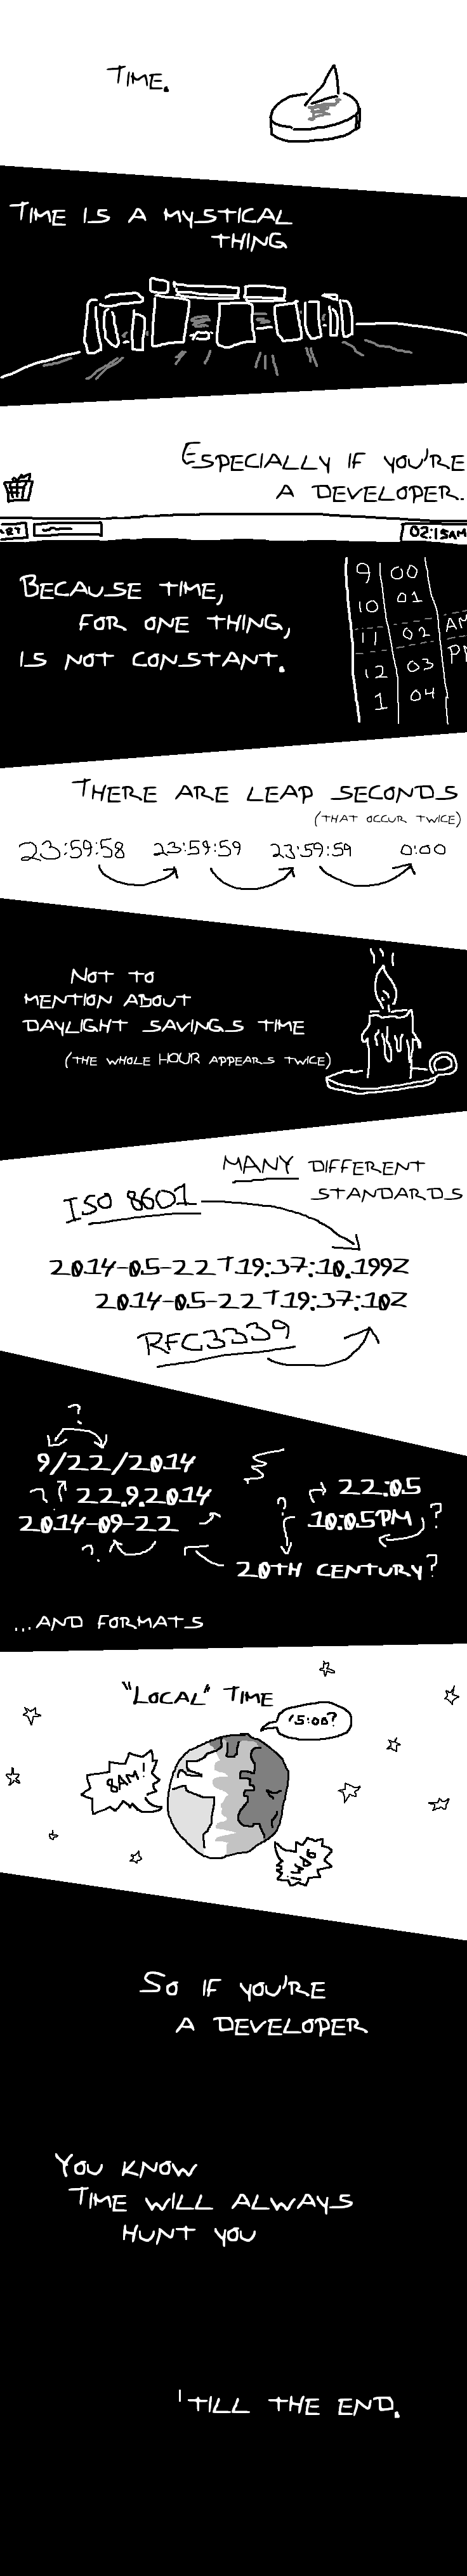 TIME.
TIME IS A MYSTICAL
THING
ESPECIALLY IF YOU'RE
A DEVELOPER.
02:15AM
BECAUSE TIME,
FOR ONE THING,
IS NOT CONSTANT.
9 00
10 01
11 02 AM
12 03
1 04
THERE ARE LEAP SECONDS
(THAT OCCUR TWICE)
23:59:58 23:59:59 23:59:59 0:00
NOT TO
MENTION ABOUT
DAYLIGHT SAVINGS TIME
(THE WHOLE HOUR APPEARS TWICE)
MANY DIFFERENT
STANDARDS
ISO 8601
2014-05-22T19:37:10.199Z
2014-05-22T19:37:10Z
RFC3339
?
9/22/2014
? 22.9.2014
2014-09-22
?
22:05
? 10:05PM ?
20TH CENTURY?
...AND FORMATS
"LOCAL" TIME
15:00?
8AM!
9PM!
SO IF YOU'RE
A DEVELOPER
YOU KNOW
TIME WILL ALWAYS
HUNT YOU
'TILL THE END.